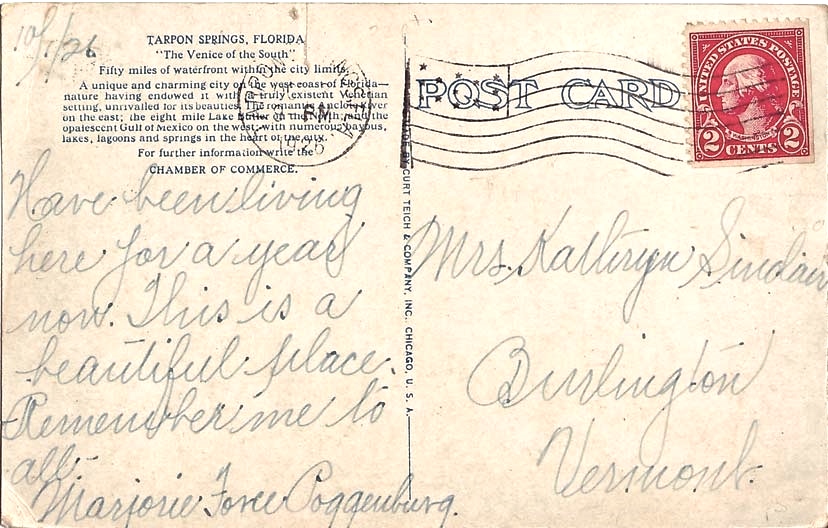 10/1/26
TARPON SPRINGS, FLORIDA
"The Venice of the South"
Fifty miles of waterfront within the city limits.
A unique and charming city on the west coast of Florida—
nature having endowed it with a truly existent Venetian
setting, unrivalled for its beauties. The romantic Anclote river
on the east; the eight mile Lake Butler on the north; and the
opalescent Gulf of Mexico on the west; with numerous bayous,
lakes, lagoons and springs in the heart of the city.
For further information write the
CHAMBER OF COMMERCE.
Have been living
here for a year
now. This is a
beautiful place.
Remember me to
all.
Marjorie Force Poggenburg.
MADE BY CURT TEICH & COMPANY, INC. CHICAGO, U. S. A.
POST CARD
PM
1926
UNITED STATES POSTAGE
WASHINGTON
2 CENTS 2
Mrs. Kathryn Sinclair
Burlington
Vermont.